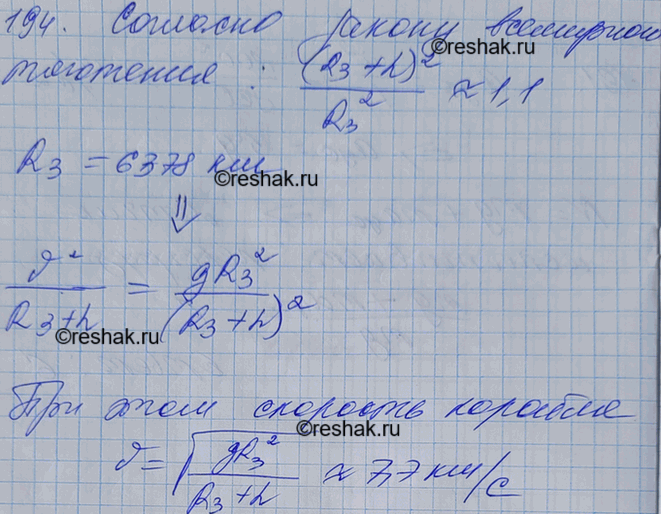 194. Согласно закону всемирного
тяготения : (Rз+h)² / Rз² ≈ 1,1
©reshak.ru
Rз = 6378 км
©reshak.ru
⇓
ϑ² / (Rз+h) = gRз² / (Rз+h)²
©reshak.ru
При этом скорость корабля
©reshak.ru
ϑ = √(gRз² / (Rз+h)) ≈ 7,7 км/с
©reshak.ru